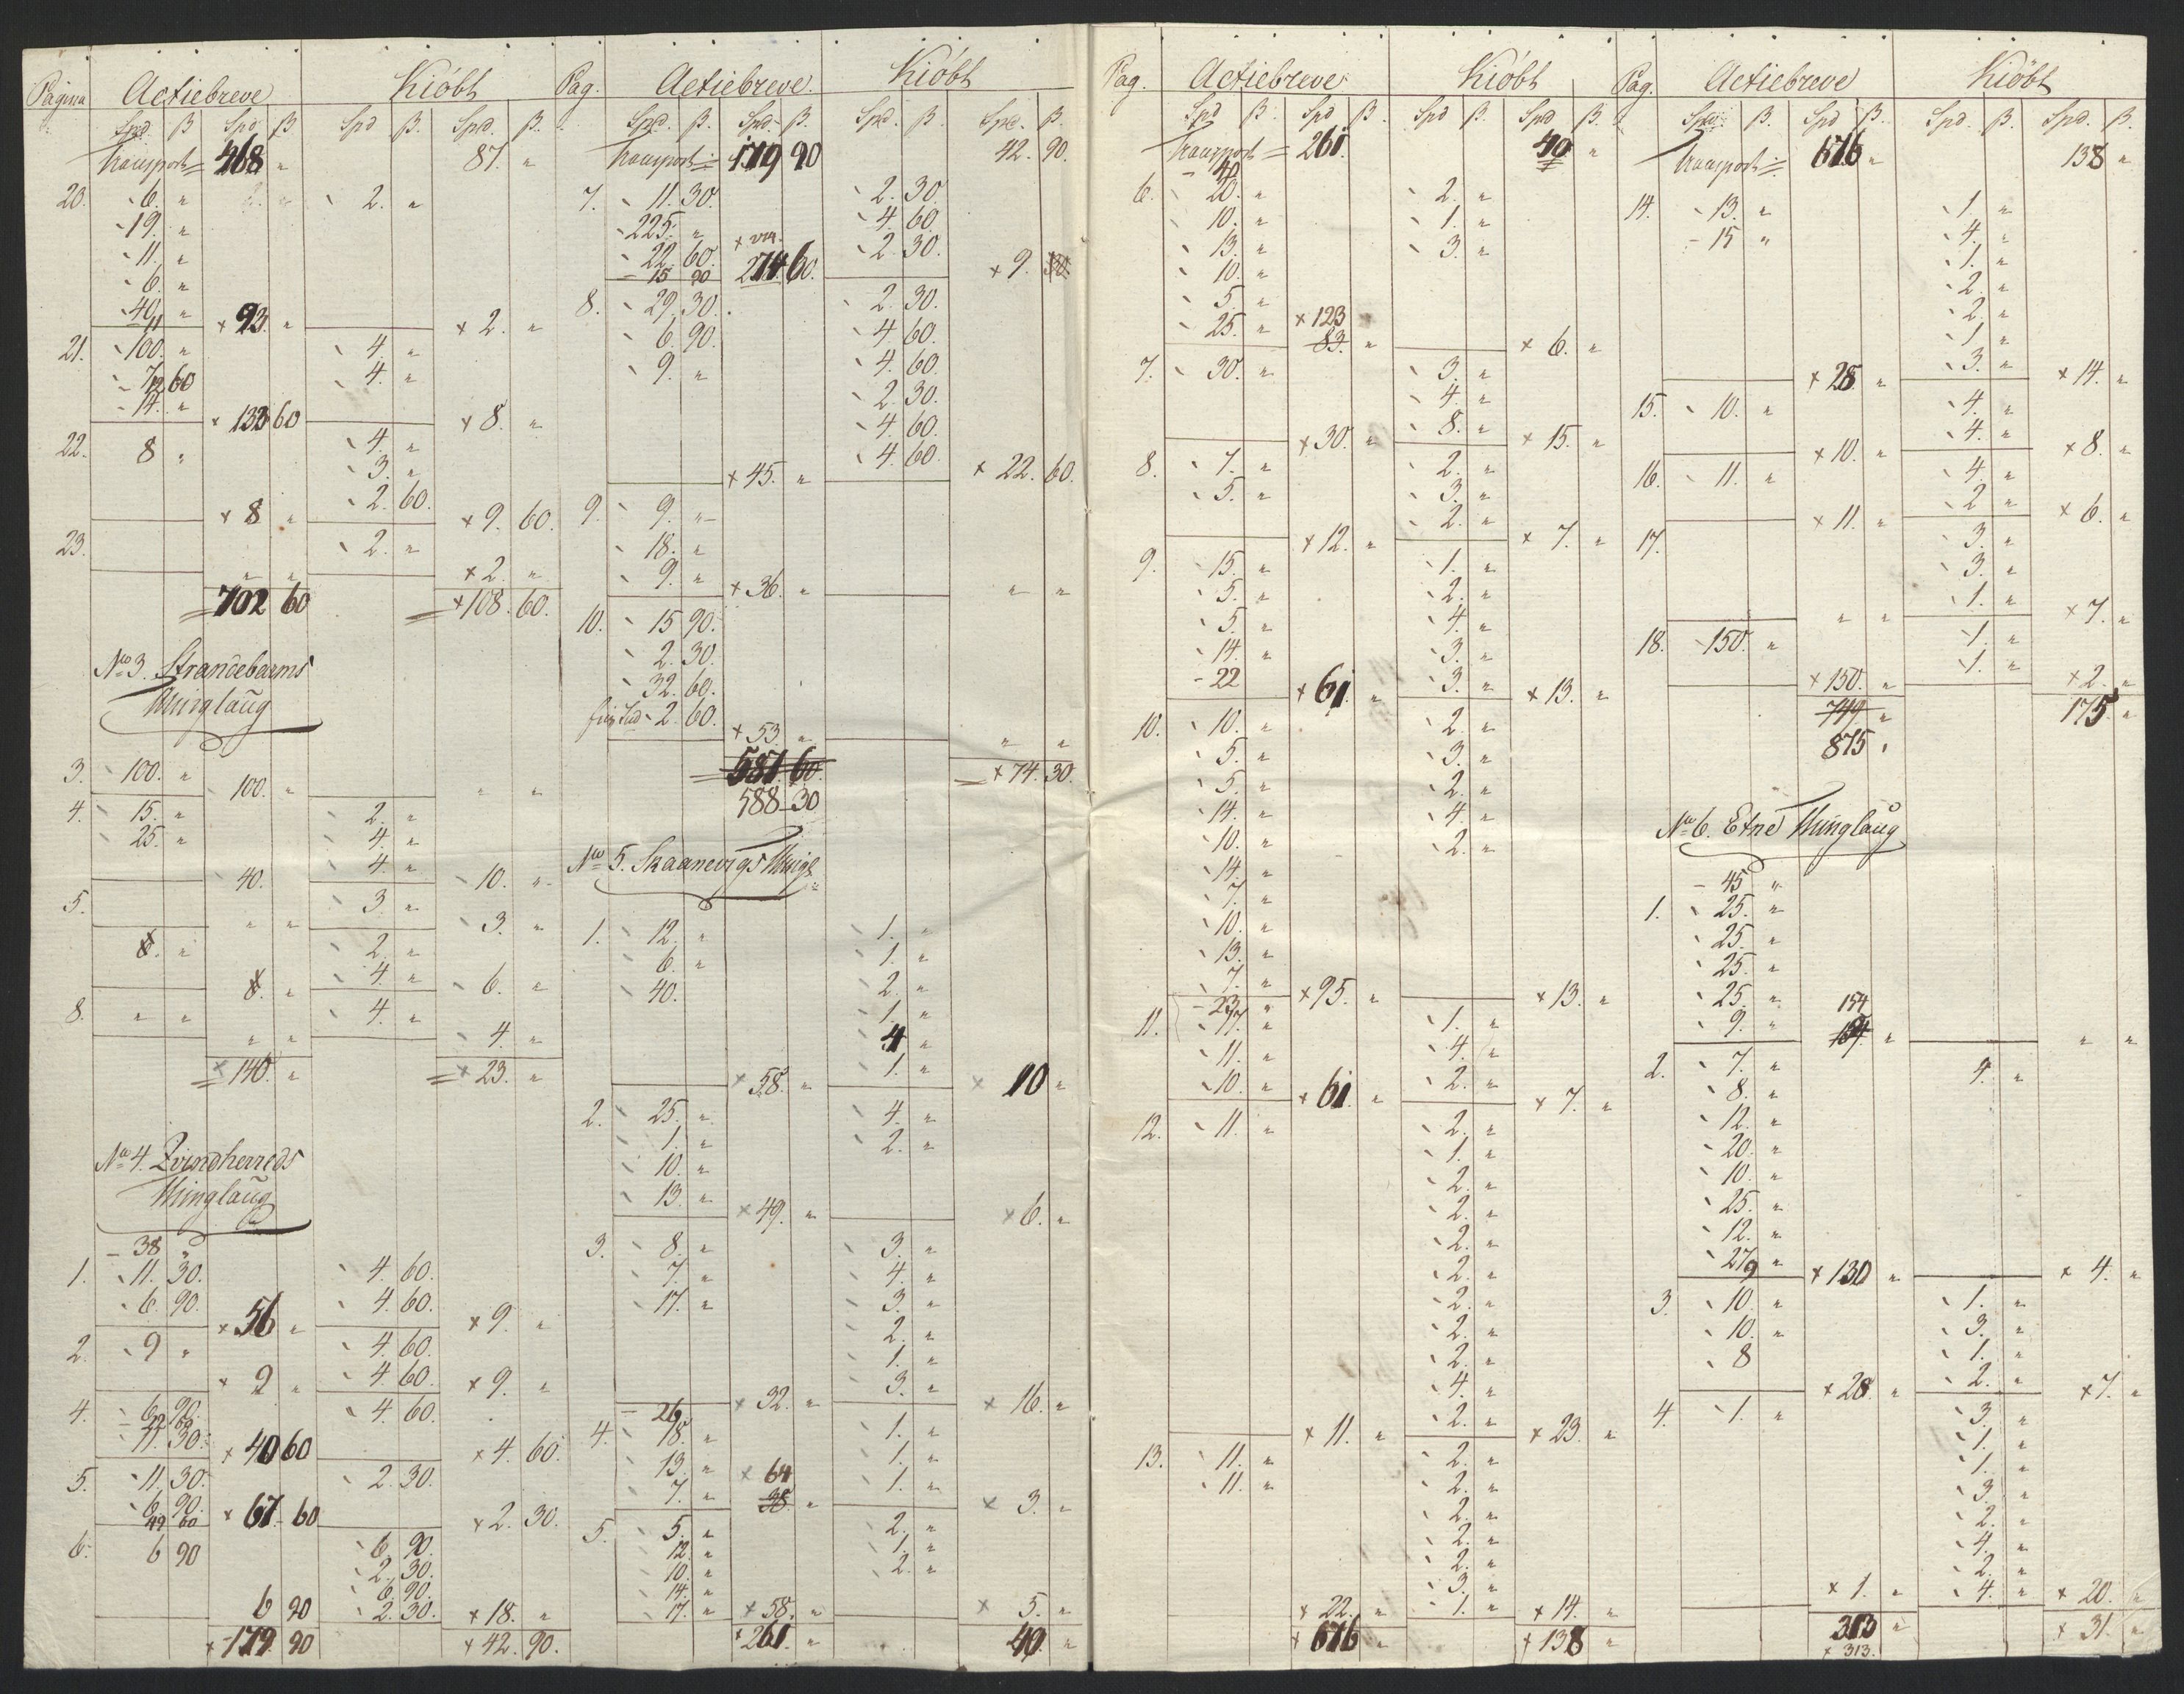 Pagina Actiebreve Kiöbt
Spd ß Spd ß Spd ß. Spd. ß.
Transport = 468 " 87. "
20. 6. " 2. "
19. "
11. "
6. "
40. " × 93. " × 2. "
11
21. 100. " 4. "
7 60 4. "
14. " × 133 60 × 8. "
22. 8 " 4. "
3. "
2. 60.
× 8 " × 9. 60.
23. 2. "
" " × 2. "
702 60 × 108. 60.
No 3. Strandebarms
Thinglaug
3. 100. " 100. " " "
4. 15. " 2. "
25. " 4. "
4. "
40. 10. "
5. 3. "
" " 3. "
8. " 2. "
4. "
8. " 6. "
8. " " 4. "
" " 4. "
× 140. " × 23. "
No 4. Qvindherreds
Thinglaug
38 "
1. 11. 30. 4. 60.
6. 90. 4. 60.
× 56 " × 9. "
2. 9 " 4. 60.
4. 60.
× 9 " × 9. "
4. 6. 90. 4. 60.
22 60
11. 30. × 40 60 × 4. 60.
5. 11. 30. 2. 30.
6. 90.
49 60 × 67. 60 × 2. 30.
6. 6 90 6. 90.
2. 30.
6. 90.
6 90 2. 30. × 18. "
× 179 90 × 42. 90.
Pag. Actiebreve. Kiöbt
Spd. ß. Spd. ß. Spd. ß. Spd. ß.
Transport = 179 90 42. 90.
7. 11. 30. 2. 30.
225. " 4. 60.
22. 60. 2. 30.
15 90 274 60. × 9.
8. 29. 30. 2. 30.
6. 90. 4. 60.
9. " 4. 60.
2. 30.
4. 60.
4. 60.
× 45. " × 22. 60.
9. 9. "
18. "
9. " × 36. " " "
10. 15 90.
2. 30.
32. 60.
2. 60.
× 53 " " "
581 60. × 74. 30.
588 30
No 5. Skaanevigs Thingl:
1. 12. " 1. "
6. " 1. "
40. 2. "
1. "
4 "
1. "
× 58. " × 10 "
2. 25. " 4. "
1. " 2. "
10. "
13. "
× 49. " × 6. "
3. 8. " 3. "
7. " 4. "
17. " 3. "
2. "
1. "
3. "
× 32. " × 16. "
26
4. 18. " 1. "
13. " × 64 1. "
7. " 38. " 1. "
× 3. "
5. 5. " 2. "
12. " 1. "
10. " 2. "
14. "
17. " × 58. " × 5. "
× 261. " 40. "
Pag. Actiebreve Kiöbt
Spd ß. Spd ß. Spd ß. Spd ß.
Transport = 261. 40 "
40
6. 20. " 2. "
10. " 1. "
13. " 3. "
10. "
5. "
25. " × 123
83. " × 6. "
7. 30. " 3. "
4. "
8. "
× 30. " × 15. "
8. 7. " 2. "
5. " 3. "
2. "
× 12. " × 7. "
9. 15. " 1. "
5. " 2. "
5. " 4. "
14. " 3. "
22 3. "
× 61. " × 13. "
10. 10. " 2. "
5. " 3. "
5. " 2. "
14. " 4. "
10. " 2. "
14. "
7. "
10. "
13. "
7. "
× 95. " × 13. "
23 "
11. 17. " 1. "
11. " 4. "
10. " 2. "
× 61. " × 7. "
12. 11. " 2. "
1. "
2. "
2. "
2. "
2. "
2. "
2. "
2. "
4. "
2. "
× 11. " × 23. "
13. 11. " 2. "
11. " 2. "
2. "
2. "
2. "
3. "
1. "
× 22. " × 14. "
× 676 " × 138 "
Pag. Actiebreve Kiöbt
Spd. ß. Spd ß. Spd. ß. Spd. ß.
Transport = 676 " 138 "
14. 13. " 1. "
15 " 4. "
1. "
2. "
2. "
1. "
3. "
× 28 " × 14. "
15. 10. " 4. "
4. "
× 10. " × 8. "
16. 11. " 4. "
2 "
× 11. " × 6. "
17. 3. "
3. "
1. "
" " × 7. "
18. 150. " 1. "
1. "
× 150. " × 2. "
749 " 175 "
875 "
No 6. Etne Thinglaug
45 "
1. 25. "
25. "
25. "
25. " 154
9. " " "
2. 7. " 4. "
8. "
12. "
20. "
10. "
25. "
12. "
27 "
9 × 130 " × 4. "
3. 10. " 1. "
10. " 3. "
8 1. "
2. "
× 28. " × 7. "
4. 1. " 3. "
1. "
1. "
3. "
2. "
4. "
2. "
× 1. " 4. " × 20. "
313 " × 31. "
× 313.